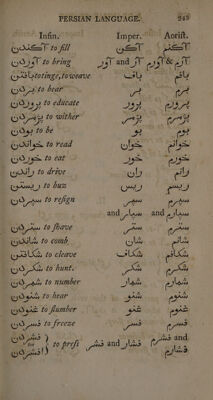 PERSIAN LANGUAGE. 243
Infin. Imper. Aorist.
to fill
آوردن to bring آر and آور آورم & آرم
بافتن to tinge, to weave باف بافم
بردن to bear بر برم
پروردن to educate پرور پرورم
to wither
بودن to be بو بوم
خواندن to read خوان خوانم
خوردن to eat خور خورم
راندن to drive ران رانم
to buz
سپردن to resign سپر سپرم
and سپار and سپارم
to shave
شاندن to comb شان شانم
شكافتن to cleave شكاف شكافم
شكردن to hunt. شكر شكرم
شمردن to number شمار شمارم
شنودن to hear شنو شنوم
غنودن to slumber غنو غنوم
فسردن to freeze فسر فسرم
فشردن to press فشار and فشر فشرم and
افشردن فشارم